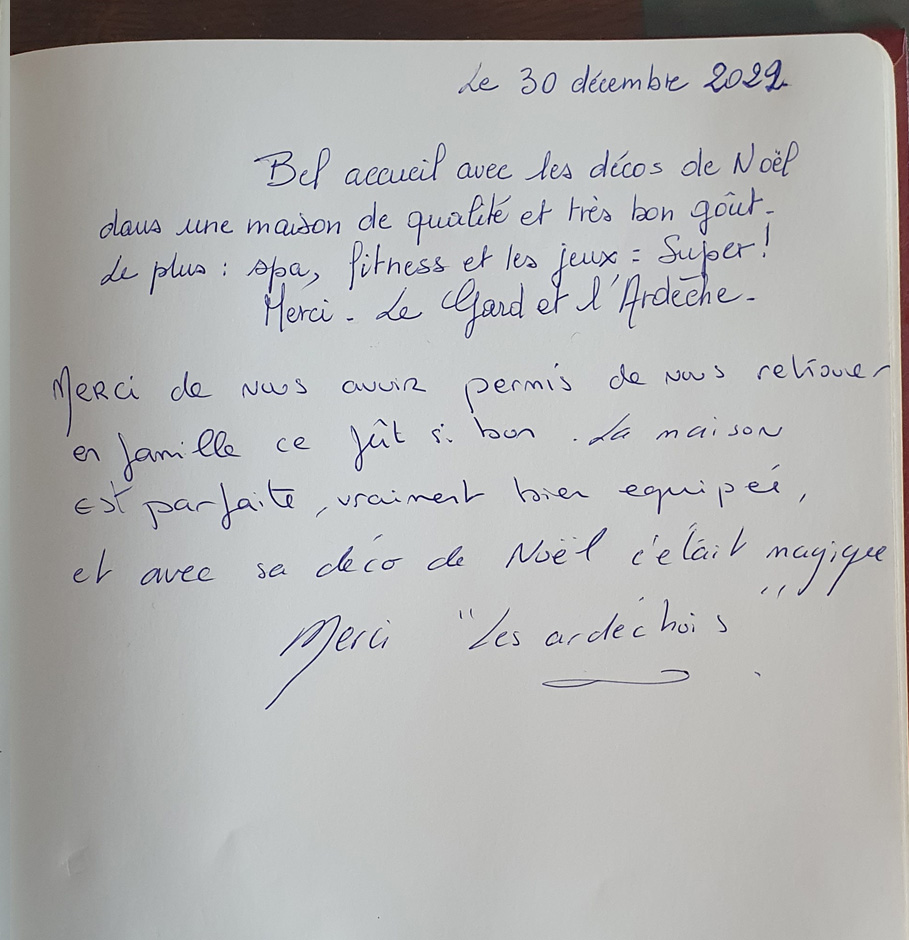 Le 30 décembre 2022.
Bel accueil avec les décos de Noël
dans une maison de qualité et très bon goût.
De plus : spa, fitness et les jeux = Super !
Merci - Le Gard et l'Ardèche -
Merci de nous avoir permis de nous retrouver
en famille ce fût si bon. La maison
est parfaite, vraiment bien equipée,
et avec sa déco de Noël c'était magique
Merci "Les ardéchois"